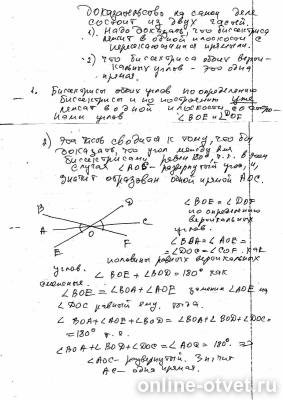 Доказательство на самом деле
состоит из двух частей.
1). Надо доказать, что биссектриса
лежит в одной плоскости с
пересекающимися прямыми.
2). что биссектриса обоих верти-
кальных углов - это одна
прямая.
1. Биссектрисы обоих углов по определению
биссектрисы и по построению уже
лежат в одной плоскости со
углов ∠BOE = ∠DOF
2) Эта часть сводится к тому, что бы
доказать, что угол между
биссектрисами равен 180°, т.е. в этом
случае ∠AOC - развернутый угол,
значит образован одной прямой AOC.
D
B
A
O
C
E
F
∠BOE = ∠DOF
по определению
вертикальных
углов.
∠BOA = ∠AOE =
= ∠DOC = ∠COF как
половины равных вертикальных
углов.
∠BOE + ∠BOD = 180° как
смежные.
∠BOE = ∠BOA + ∠AOE заменим ∠AOE на
∠DOC равный ему. тогда
∠BOA + ∠AOE + ∠BOD = ∠BOA + ∠BOD + ∠DOC =
= 180° т.е.
∠BOA + ∠BOD + ∠DOC = ∠AOC = 180° ⇒
∠AOC - развернутый. Значит
AC - одна прямая.
online-otvet.ru